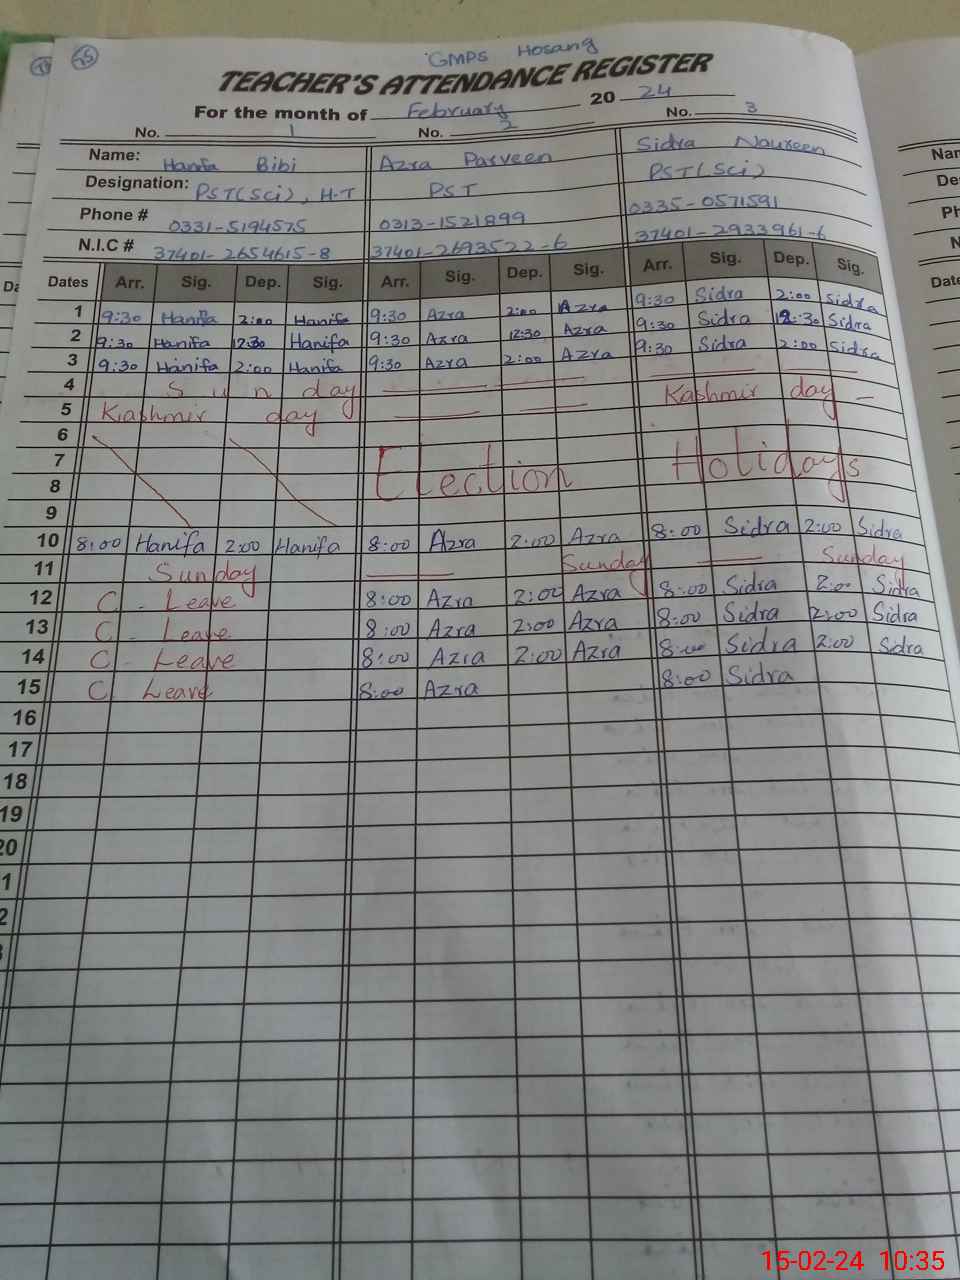 75
GMPS Hosang
TEACHER'S ATTENDANCE REGISTER
For the month of February 20 24
No. 1 No. 2 No. 3
Name: Hanifa Bibi Azra Parveen Sidra Noureen
Designation: PST(Sci), H-T PST PST(Sci)
Phone # 0331-5194575 0313-1521899 0335-0571591
N.I.C # 37401-2654615-8 37401-2693522-6 37401-2933961-6
Dates Arr. Sig. Dep. Sig. Arr. Sig. Dep. Sig. Arr. Sig. Dep. Sig.
1 9:30 Hanifa 2:00 Hanifa 9:30 Azra 2:00 Azra 9:30 Sidra 2:00 Sidra
2 9:30 Hanifa 12:30 Hanifa 9:30 Azra 12:30 Azra 9:30 Sidra 12:30 Sidra
3 9:30 Hanifa 2:00 Hanifa 9:30 Azra 2:00 Azra 9:30 Sidra 2:00 Sidra
4 Sunday
5 Kashmir day Kashmir day
6
7 Election Holidays
8
9
10 8:00 Hanifa 2:00 Hanifa 8:00 Azra 2:00 Azra 8:00 Sidra 2:00 Sidra
11 Sunday Sunday Sunday
12 C - Leave 8:00 Azra 2:00 Azra 8:00 Sidra 2:00 Sidra
13 C - Leave 8:00 Azra 2:00 Azra 8:00 Sidra 2:00 Sidra
14 C - Leave 8:00 Azra 2:00 Azra 8:00 Sidra 2:00 Sidra
15 C Leave 8:00 Azra 8:00 Sidra
16
17
18
19
20
15-02-24 10:35